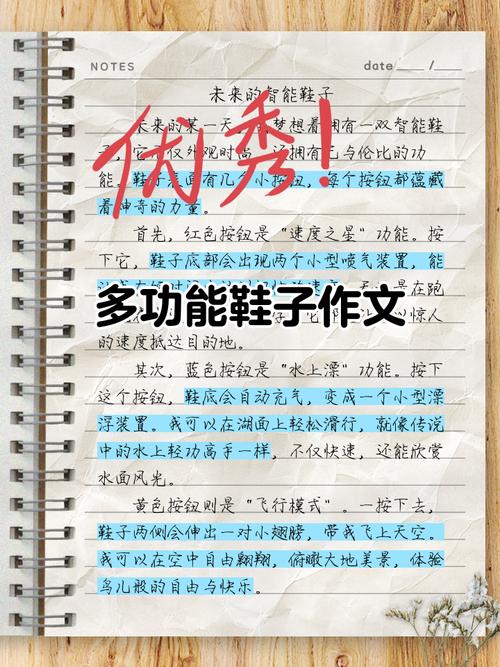 NOTES
date ____ / ____
未来的智能鞋子
未来的某一天，我梦想着拥有一双智能鞋
子，它不仅外观时尚，还拥有无与伦比的功
能。鞋子表面有几个小按钮，每个按钮都蕴藏
着神奇的力量。
优秀！
首先，红色按钮是“速度之星”功能。按
下它，鞋子底部会出现两个小型喷气装置，能
多功能鞋子作文
的速度抵达目的地。
其次，蓝色按钮是“水上漂”功能。按下
这个按钮，鞋底会自动充气，变成一个小型漂
浮装置。我可以在湖面上轻松滑行，就像传说
中的水上轻功高手一样，不仅快速，还能欣赏
水面风光。
黄色按钮则是“飞行模式”。一按下去，
鞋子两侧会伸出一对小翅膀，带我飞上天空。
我可以在空中自由翱翔，俯瞰大地美景，体验
鸟儿般的自由与快乐。